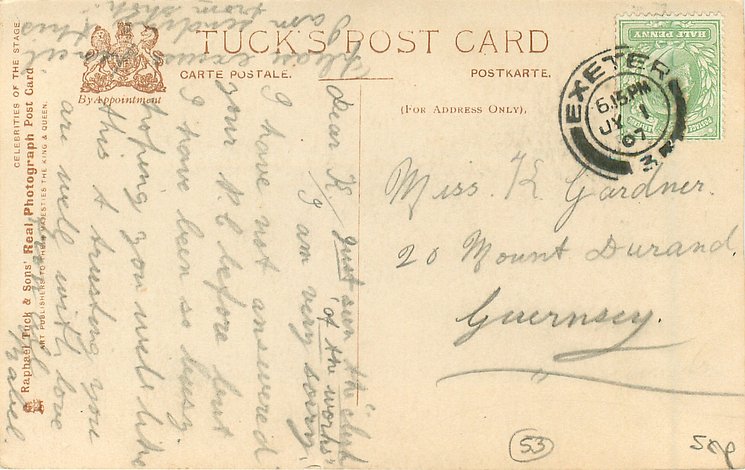 TUCK'S POST CARD
CARTE POSTALE.
POSTKARTE.
By Appointment
(FOR ADDRESS ONLY).
CELEBRITIES OF THE STAGE.
Raphael Tuck & Sons' Real Photograph Post Card
ART PUBLISHERS TO THEIR MAJESTIES THE KING & QUEEN.
HALF PENNY
EXETER
6.15 PM
JY 1
07
Miss. K Gardner.
20 Mount Durand.
Guernsey.
Dear K. Just seen the
of the works
I am very sorry
I have not answered
your P.C before but
I have been so busy
hoping you will like
this & trusting you
are well with love
from
Mabel
Please excuse
this
am sending
from shop.
53
50p